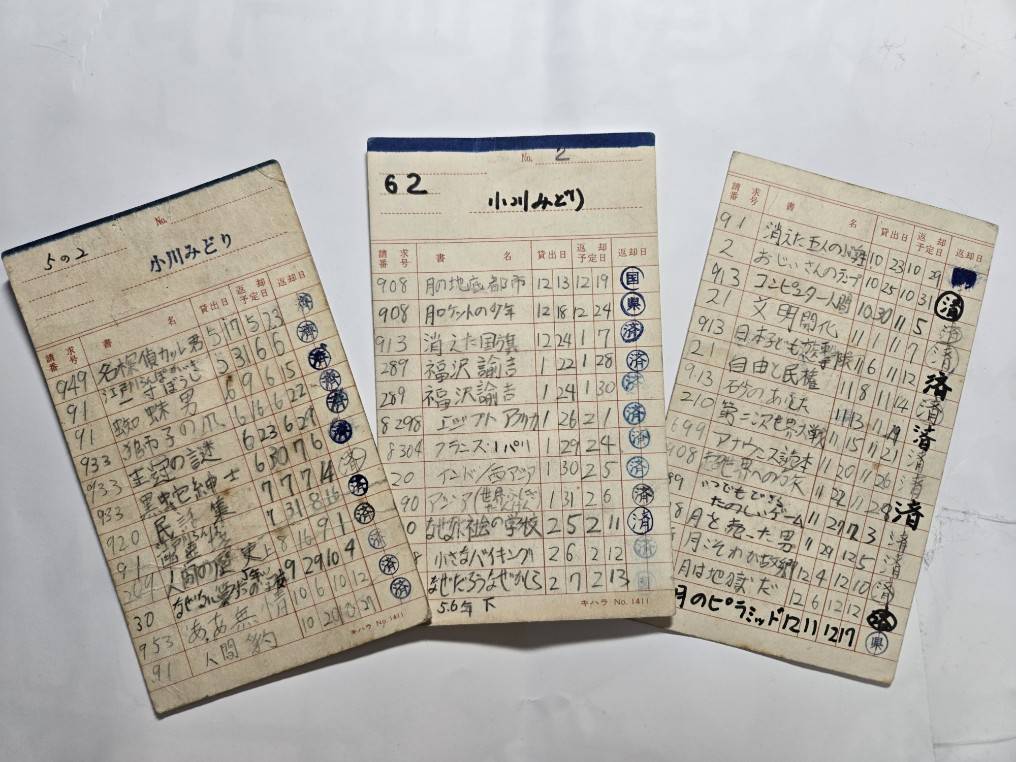 No.
5の2 小川みどり
請求番号 書名 貸出日 返却予定日 返却日
949 名探偵カッレ君 5 17 5 23 済
91 5 31 6 6 済
91 蜘蛛男 6 9 6 15 済
933 獅子の爪 6 16 6 22 済
933 王冠の謎 6 23 6 29 済
933 黒蛇紳士 6 30 7 6 済
720 民話集 7 7 7 14 済
91 7 31 8 16 済
204 人間の歴史 上 8 16 9 1 済
30 9 29 10 4 済
953 ああ無情 10 6 10 12 済
91 人間 10 20 10 27 済
キハラ No.1411
No. 2
62 小川みどり
請求番号 書名 貸出日 返却予定日 返却日
908 月の地底都市 12 13 12 19 国
908 月ロケットの少年 12 18 12 24 県
913 消えた国旗 12 24 1 7 済
289 福沢諭吉 1 22 1 28 済
289 福沢諭吉 1 24 1 30 済
8298 エジプト アフリカ 1 26 2 1 済
8304 フランス・パリ 1 29 2 4 済
20 インド/西アジア 1 30 2 5 済
90 1 31 2 6 済
0 なぜなに社会の学校 2 5 2 11 済
8 小さなバイキング 2 6 2 12
なぜだろうなぜかしら 2 7 2 13
5.6年 下
キハラ No.1411
請求番号 書名 貸出日 返却予定日 返却日
91 消えた五人の小学生 10 23 10 29
2 おじいさんのランプ 10 25 10 31 済
913 コンピューター人間 10 30 11 5 済
21 文明開化 11 1 11 7 済
913 11 6 11 12 済
21 自由と民権 11 8 11 14 済
913 砂のあした 11 13 11 19 済
210 第二次世界大戦 11 15 11 21 済
699 アナウンス読本 11 20 11 26 済
908 超世界への旅 11 22 11 28 済
99 いつでもできるたのしいゲーム 11 27 12 3 済
8 月を売った男 11 29 12 5 済
月こそわが故郷 12 4 12 10 済
月は地獄だ 12 6 12 12 済
月のピラミッド 12 11 12 17 県